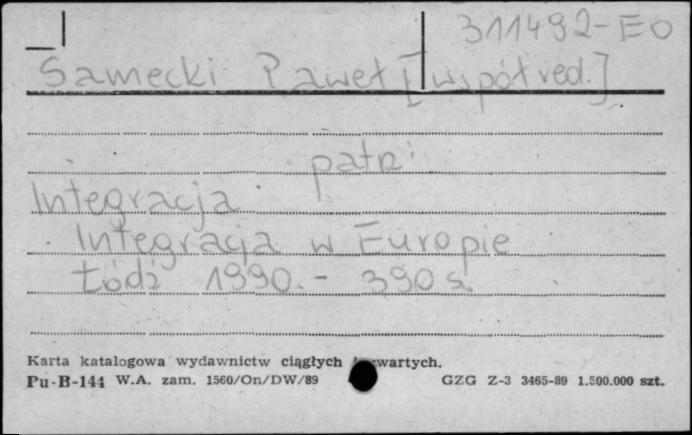 311492-EO
Samecki Paweł [współred.]
patrz:
Integracja
Integracja w Europie
Łódź 1990. - 390 s.
Karta katalogowa wydawnictw ciągłych wwartych.
Pu-B-144 W.A. zam. 1560/On/DW/89 GZG Z-3 3465-89 1.500.000 szt.